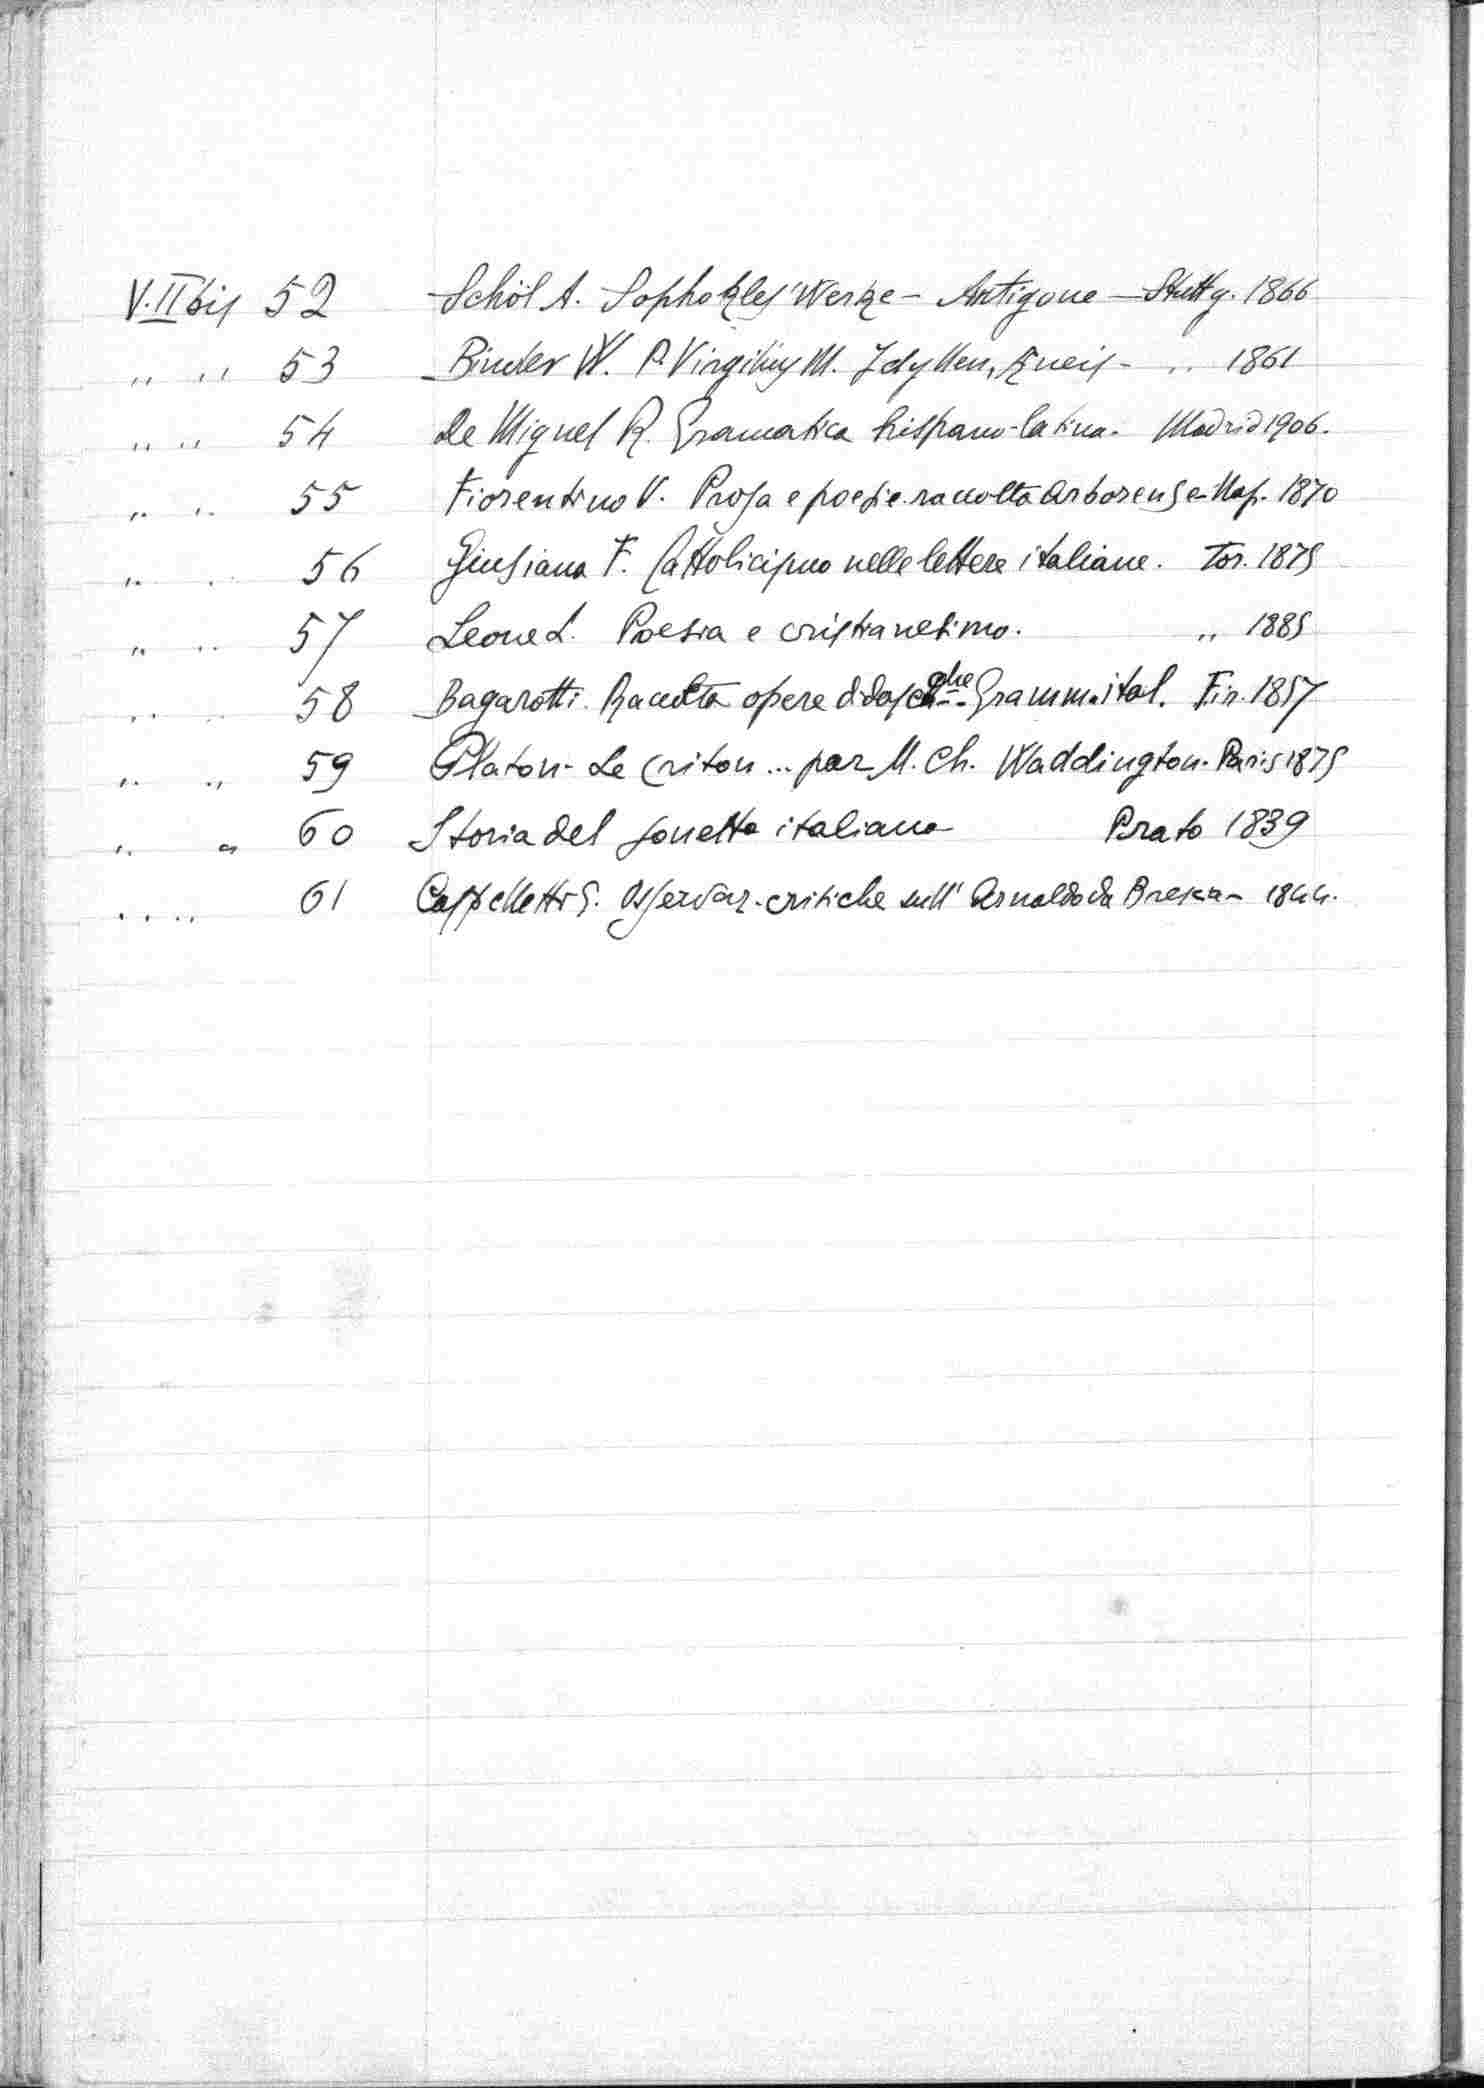 V. II bis 52 Schöl A. Sophokles' Werke - Antigone - Stuttg. 1866
" " 53 Binder W. P. Virgilius M. Idyllen, Äneis - " 1861
" " 54 De Miguel R. Gramatica hispano-latina. Madrid 1906.
" " 55 Fiorentino V. Prosa e poesie raccolta Arborense - Nap. 1870
" " 56 Giusiana F. Cattolicismo nelle lettere italiane. Tor. 1875
" " 57 Leone L. Poesia e cristianesimo. " 1885
" " 58 Bagarotti. Raccolta opere didasc. ghe Gramm. ital. Fir. 1857
" " 59 Platon - Le Criton ... par M. Ch. Waddington. Paris 1875
" " 60 Storia del sonetto italiano Prato 1839
" " 61 Cappelletti G. Osservaz. critiche sull' Arnaldo da Brescia - 1844.